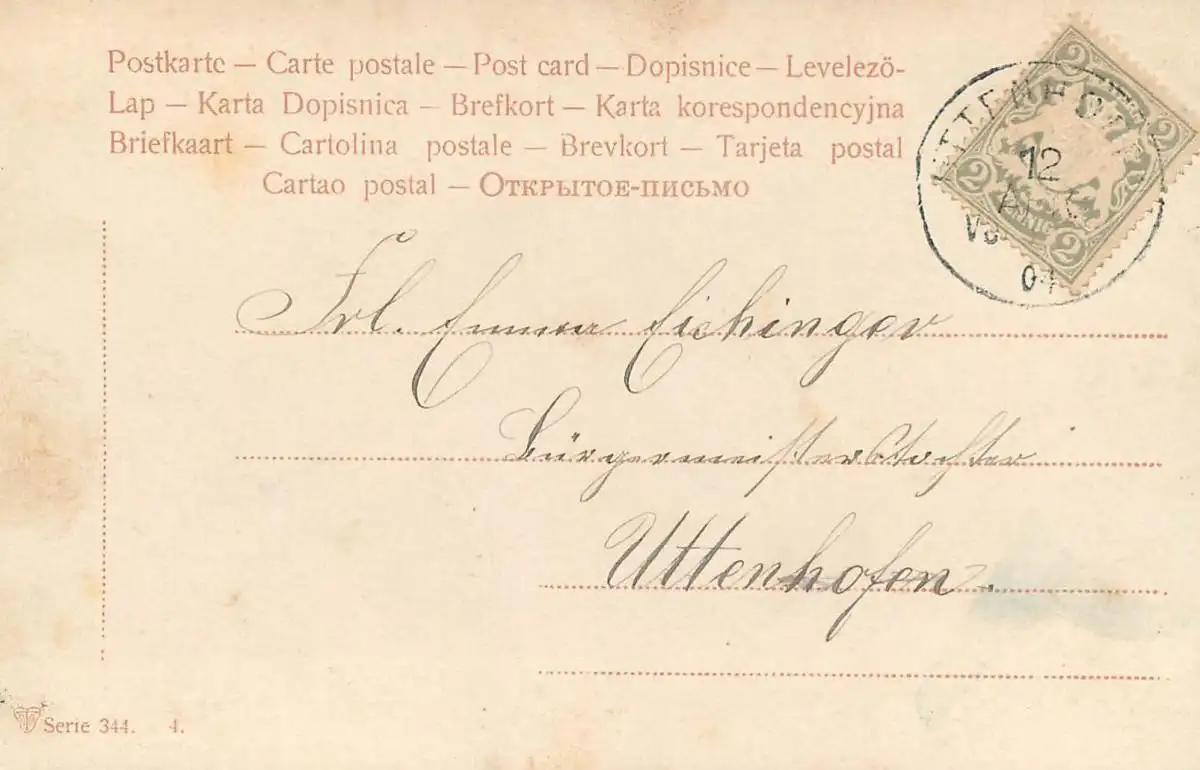 Postkarte – Carte postale – Post card – Dopisnice – Levelezö-
Lap – Karta Dopisnica – Brefkort – Karta korespondencyjna
Briefkaart – Cartolina postale – Brevkort – Tarjeta postal
Cartao postal – Открытое-письмо
2 2
2 2
12
04
Frl. Emma Eichinger
Bürgermeisterstochter
Uttenhofen.
Serie 344. 4.